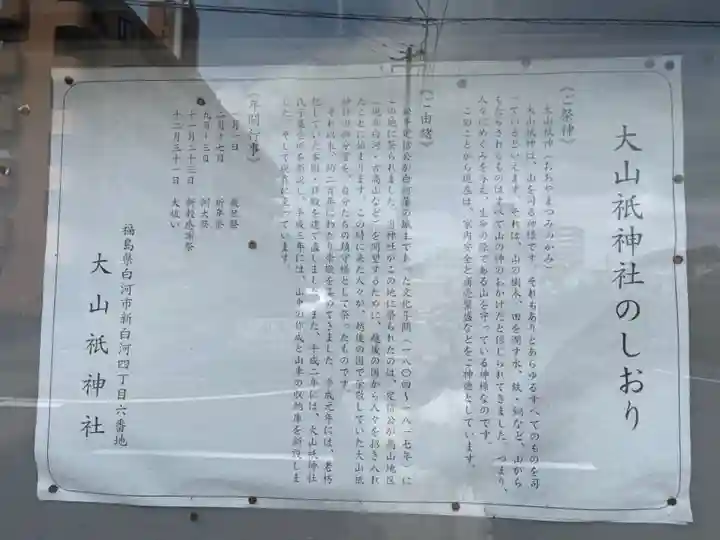 大山祇神社のしおり
《ご祭神》
大山祇神（おおやまつみのかみ）
大山祇神は、山を司る神様です。それもありとあらゆるすべてのものを司
っているといえます。それは、山の樹木、田を潤す水、鉄・銅など、山から
もたらされるものはすべて山の神のおかげだと信じられてきました。つまり、
人々にめぐみを与え、生命の源である山を守っている神様なのです。
このことから現在は、家内安全と商売繁盛などをご神徳としています。
《ご由緒》
松平定信公が白河藩の城主であった文化年間（一八〇四〜一八一七年）に
この地に祭られました。当神社がこの地に祭られたのは、定信公が高山地区
（現新白河・古高山など）を開墾するために、越後の国から人々を招き入れ
たことに始まります。この時に来た人々が、越後の国で崇敬していた大山祇
神社の御分霊を、自分たちの鎮守様として祭ったものです。
それ以来、約二百年にわたり崇敬を集めてきました。平成元年には、老朽
化していた本殿・拝殿を建て直しました。また、平成二年には、大山祇神社
八子屋台を新設し、平成三年には、山車の作成と山車の収納庫を新設しま
した。そして現在に至っています。
《年間行事》
一月一日 歳旦祭
二月十七日 祈年祭
九月十三日 例大祭
十一月二十三日 新穀感謝祭
十二月三十一日 大祓い
福島県白河市新白河四丁目六番地
大山祇神社